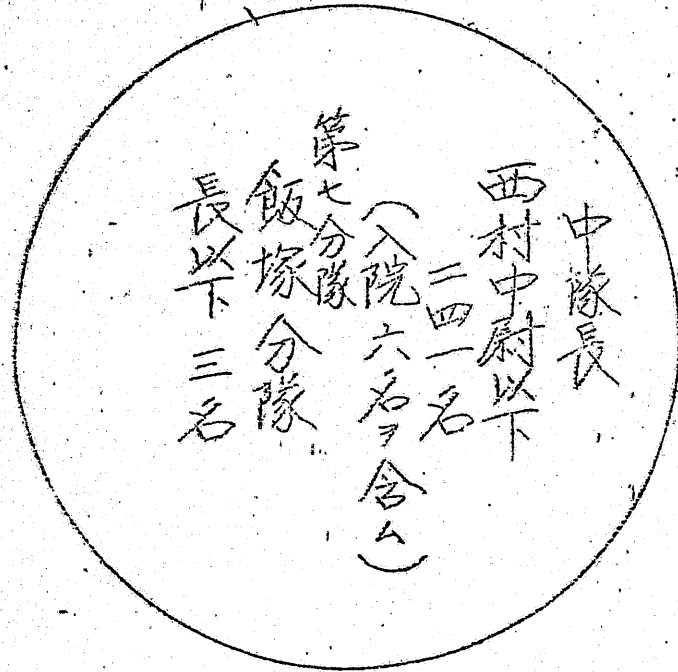 中隊長
西村中尉以下
二四一名
(入院六名ヲ含ム)
第七分隊
飯塚分隊
長以下三名